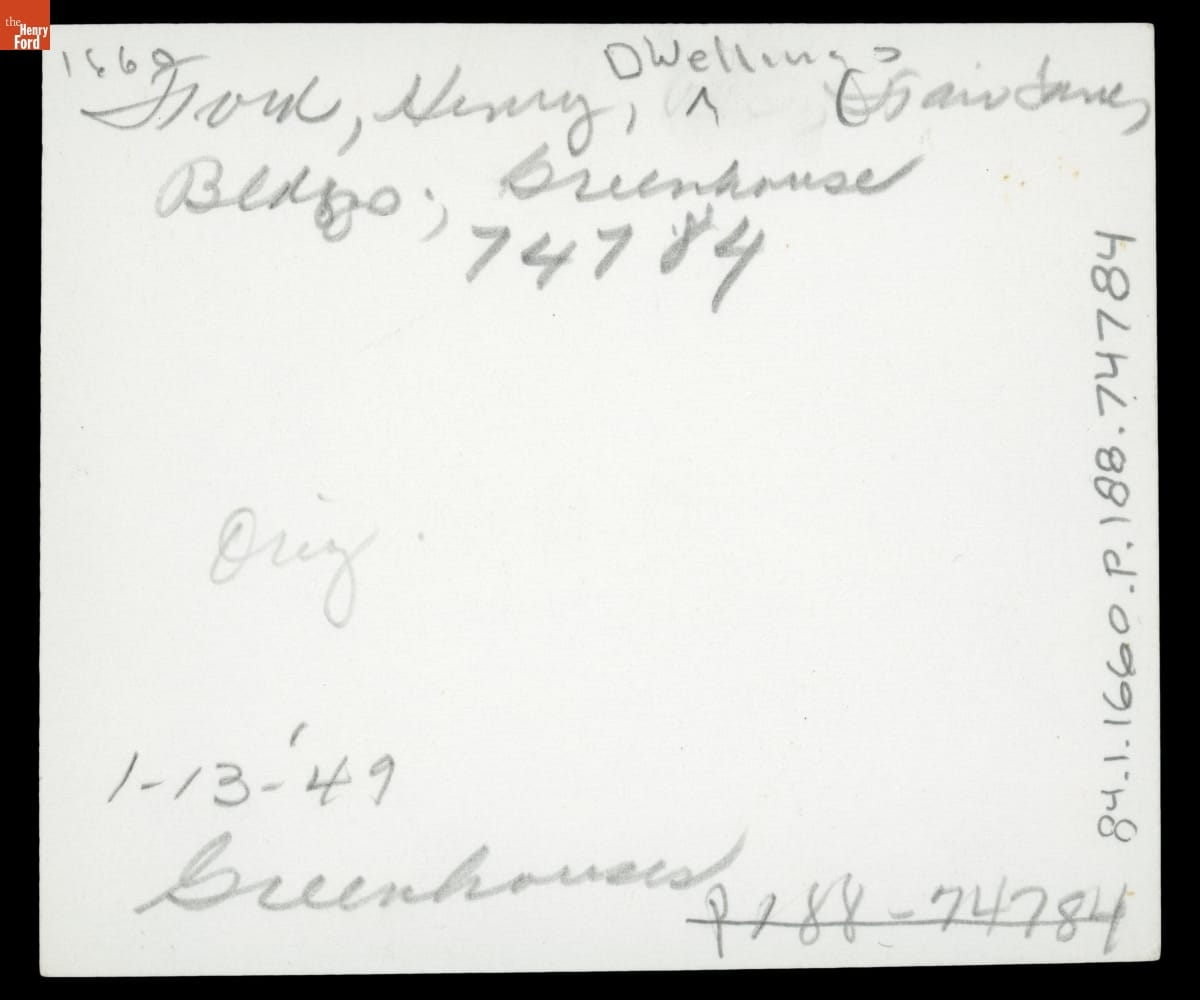 the
Henry
Ford
1660
Dwellings
Ford, Henry, ^ (Fair Lane,
Bldgs.; Greenhouse
74784
Orig.
1-13-'49
Greenhouses
P188-74784
84.1.1660.P.188.74784